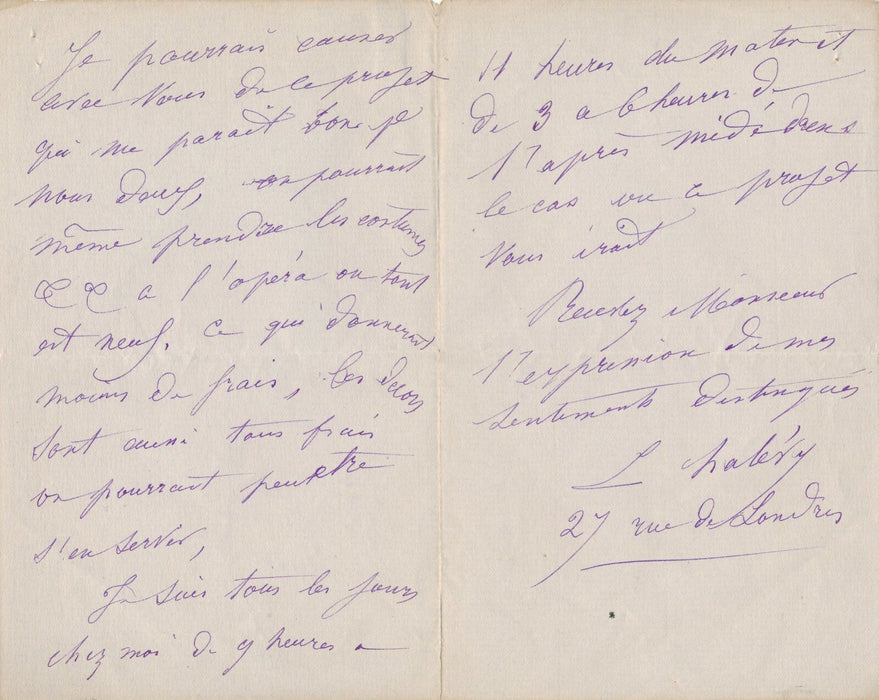 Je pourrais causer
avec Vous de ce projet
qui me parait bon p
nous deux, on pourrait
même prendre les costumes
a l'opéra ou tout
est neuf. ce qui donnerait
moins de frais, les decors
sont aussi tous frais
on pourrait peutetre
s'en servir,
Je suis tous les jours
chez moi de 9 heures a
11 heures du matin et
de 3 a 6 heures de
l'après midi dans
le cas ou ce projet
Vous irait
Recevez Monsieur
l'expression de mes
sentiments distingués
L
27 rue de Londres